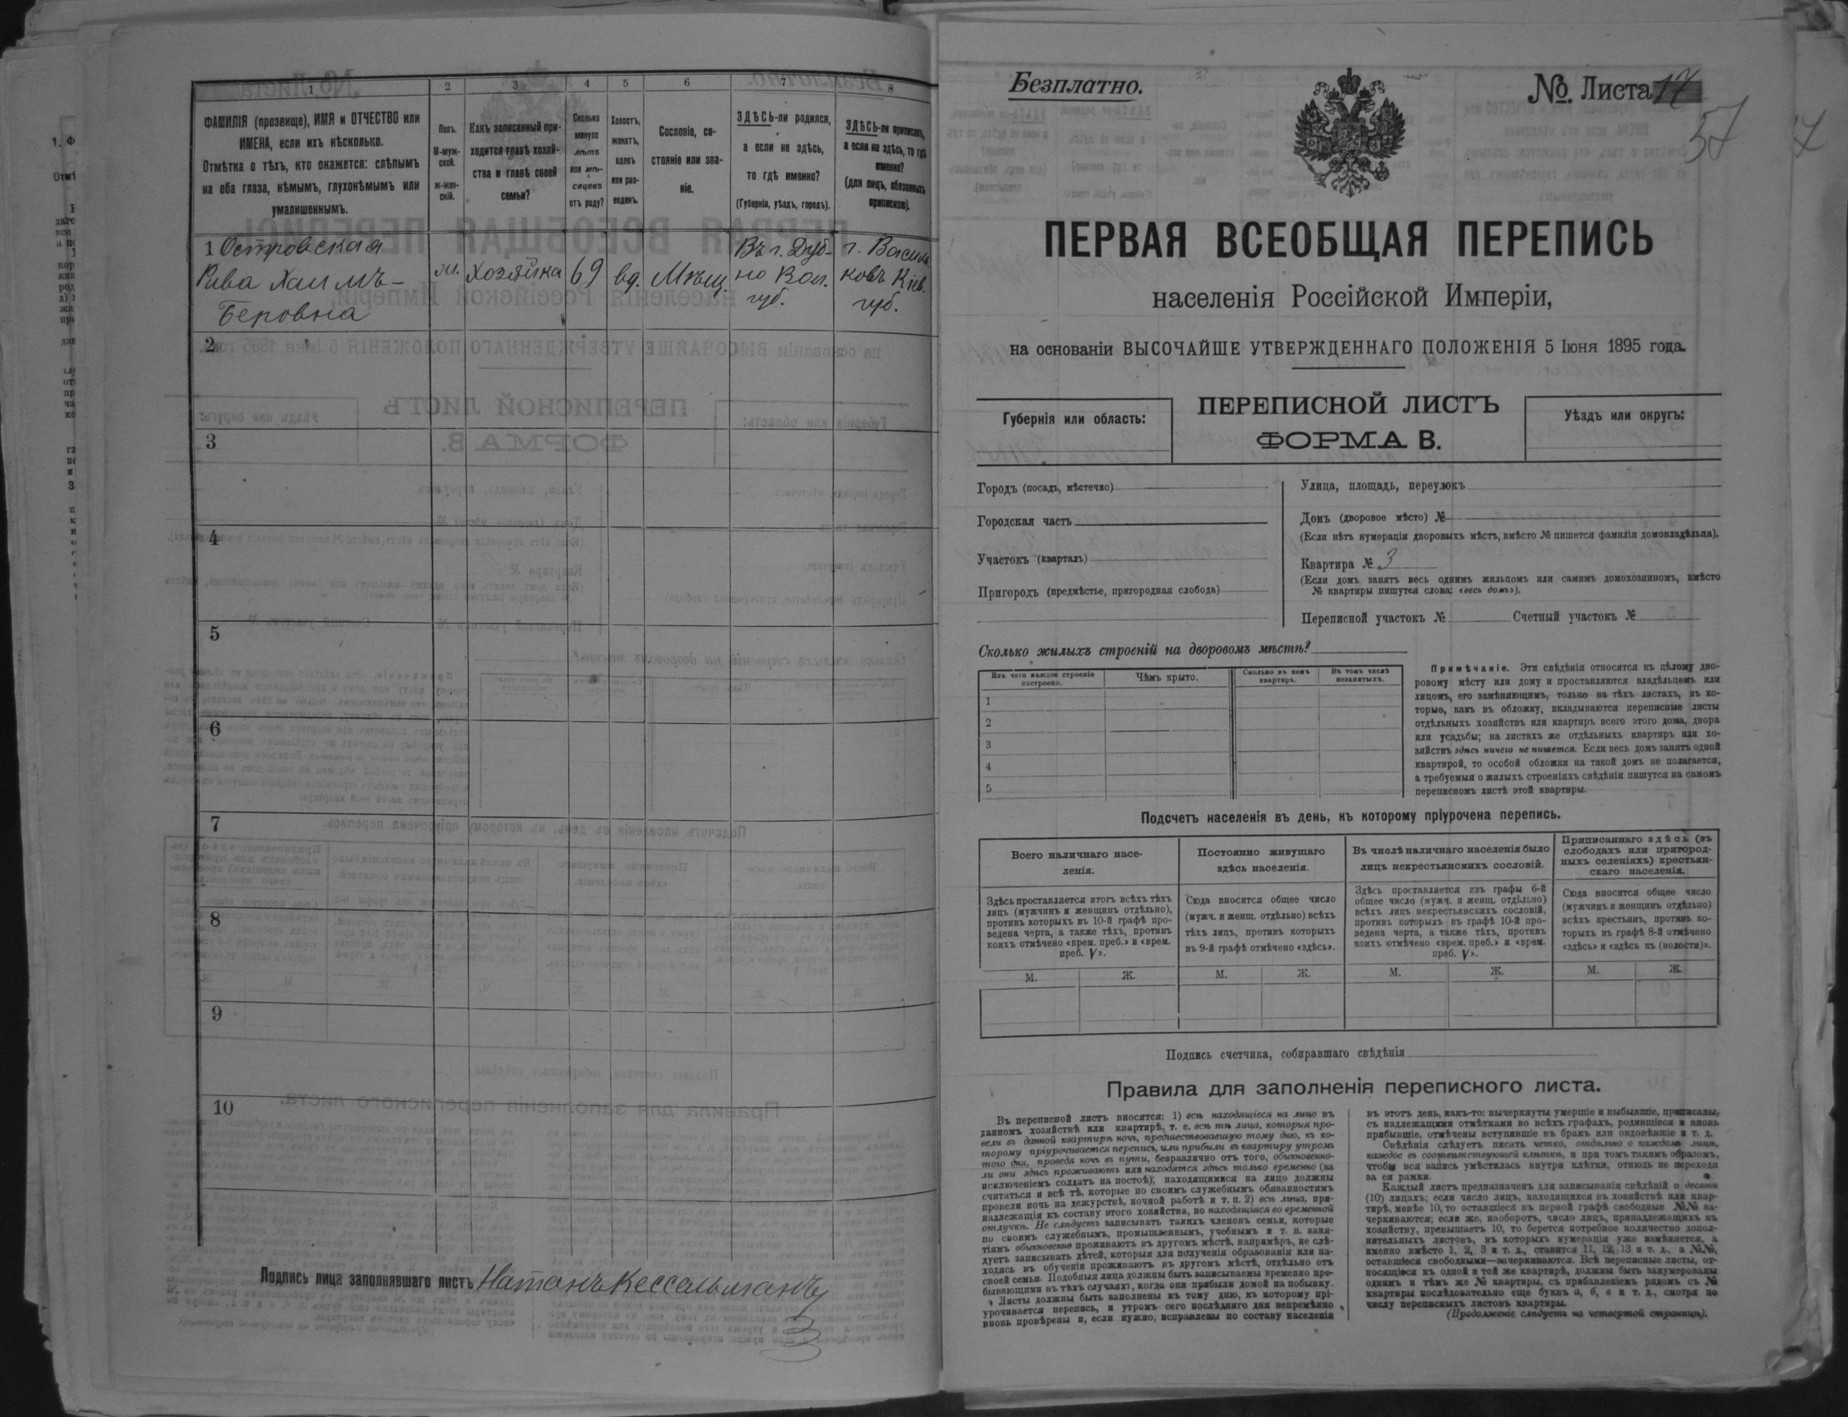 1
2
3
4
5
6
7
8
ФАМИЛІЯ (прозвище), ИМЯ и ОТЧЕСТВО или
ИМЕНА, если ихъ нѣсколько.
Отмѣтка о тѣхъ, кто окажется: слѣпымъ
на оба глаза, нѣмымъ, глухонѣмымъ или
умалишеннымъ.
Полъ.
М-муж-
ской.
ж-жен-
скій.
Какъ записанный при-
ходится главѣ хозяй-
ства и главѣ своей
семьи?
Сколько
минуло
лѣтъ
или мѣ-
сяцевъ
отъ роду?
Холостъ,
женатъ,
вдовъ
или раз-
веденъ.
Сословіе, со-
стояніе или зва-
ніе.
ЗДѢСЬ-ли родился,
а если не здѣсь,
то гдѣ именно?
(Губернія, уѣздъ, городъ).
ЗДѢСЬ-ли приписанъ,
а если не здѣсь, то гдѣ
именно?
(для лицъ, обязанныхъ
припискою).
1 Островская
Рива Хаимъ-
Беровна
ж.
хозяйка
69
вд.
Мѣщ.
Въ г. Дуб-
но Вол.
губ.
г. Василь
ковъ Кіев.
губ.
2
3
4
5
6
7
8
9
10
Подпись лица заполнявшаго листъ Натанъ Кессельманъ
Безплатно.
№ Листа 17
57
ПЕРВАЯ ВСЕОБЩАЯ ПЕРЕПИСЬ
населенія Россійской Имперіи,
на основаніи ВЫСОЧАЙШЕ УТВЕРЖДЕННАГО ПОЛОЖЕНІЯ 5 Іюня 1895 года.
Губернія или область:
ПЕРЕПИСНОЙ ЛИСТЪ
ФОРМА В.
Уѣздъ или округъ:
Городъ (посадъ, мѣстечко)
Городская часть
Участокъ (кварталъ)
Пригородъ (предмѣстье, пригородная слобода)
Улица, площадь, переулокъ
Домъ (дворовое мѣсто) №
(Если нѣтъ нумераціи дворовыхъ мѣстъ, вмѣсто № пишется фамилія домовладѣльца).
Квартира № 3
(Если домъ занятъ весь однимъ жильцомъ или самимъ домохозяиномъ, вмѣсто
№ квартиры пишутся слова: «весь домъ»).
Переписной участокъ № Счетный участокъ №
Сколько жилыхъ строеній на дворовомъ мѣстѣ?
Изъ чего каждое строеніе
построено.
Чѣмъ крыто.
Сколько въ немъ
квартиръ.
Въ томъ числѣ
незанятыхъ.
1
2
3
4
5
Примѣчаніе. Эти свѣдѣнія относятся къ цѣлому дво-
ровому мѣсту или дому и проставляются владѣльцемъ или
лицомъ, его замѣняющимъ, только на тѣхъ листахъ, въ ко-
торые, какъ въ обложку, вкладываются переписные листы
отдѣльныхъ хозяйствъ или квартиръ всего этого дома, двора
или усадьбы; на листахъ же отдѣльныхъ квартиръ или хо-
зяйствъ здѣсь ничего не пишется. Если весь домъ занятъ одной
квартирой, то особой обложки на такой домъ не полагается,
а требуемыя о жилыхъ строеніяхъ свѣдѣнія пишутся на самомъ
переписномъ листѣ этой квартиры.
Подсчетъ населенія въ день, къ которому пріурочена перепись.
Всего наличнаго насе-
ленія.
Постоянно живущаго
здѣсь населенія.
Въ числѣ наличнаго населенія было
лицъ некрестьянскихъ сословій.
Приписаннаго здѣсь (въ
слободахъ или пригород-
ныхъ селеніяхъ) крестьян-
скаго населенія.
Здѣсь проставляется итогъ всѣхъ тѣхъ
лицъ (мужчинъ и женщинъ отдѣльно),
противъ которыхъ въ 10-й графѣ про-
ведена черта, а также тѣхъ, противъ
коихъ отмѣчено «врем. преб.» и «врем.
преб. V».
Сюда вносится общее число
(мужч. и женщ. отдѣльно) всѣхъ
тѣхъ лицъ, противъ которыхъ
въ 9-й графѣ отмѣчено «здѣсь».
Здѣсь проставляется изъ графы 6-й
общее число (мужч. и женщ. отдѣльно)
всѣхъ лицъ некрестьянскихъ сословій,
противъ которыхъ въ графѣ 10-й про-
ведена черта, а также тѣхъ, противъ
коихъ отмѣчено «врем. преб.» и «врем.
преб. V».
Сюда вносится общее число
(мужчинъ и женщинъ отдѣльно)
всѣхъ крестьянъ, противъ ко-
торыхъ въ графѣ 8-й отмѣчено
«здѣсь» и «здѣсь къ (волости)».
М. Ж. М. Ж. М. Ж. М. Ж.
Подпись счетчика, собиравшаго свѣдѣнія
Правила для заполненія переписного листа.
Въ переписной листъ вносятся: 1) всѣ находящіеся на лицо въ
данномъ хозяйствѣ или квартирѣ, т. е. всѣ тѣ лица, которыя про-
вели въ данной квартирѣ ночь, предшествовавшую тому дню, къ ко-
торому пріурочивается перепись, или прибыли въ квартиру утромъ
того дня, проведя ночь въ пути, безразлично отъ того, обыкновенно-
ли они здѣсь проживаютъ или находятся здѣсь только временно (за
исключеніемъ солдатъ на постоѣ); находящимися на лицо должны
считаться и всѣ тѣ, которые по своимъ служебнымъ обязанностямъ
провели ночь на дежурствѣ, ночной работѣ и т. п. 2) всѣ лица, при-
надлежащія къ составу этого хозяйства, но находящіяся во временной
отлучкѣ. Не слѣдуетъ записывать такихъ членовъ семьи, которые
по своимъ служебнымъ, промышленнымъ, учебнымъ и т. п. заня-
тіямъ обыкновенно проживаютъ въ другомъ мѣстѣ, напримѣръ, не слѣ-
дуетъ записывать дѣтей, которыя для полученія образованія или на-
ходясь въ обученіи проживаютъ въ другомъ мѣстѣ, отдѣльно отъ
своей семьи. Подобныя лица должны быть записываемы временно пре-
бывающими въ тѣхъ случаяхъ, когда они прибыли домой на побывку.
Листы должны быть заполнены къ тому дню, къ которому прі-
урочивается перепись, и утромъ сего послѣдняго дня непремѣнно
вновь провѣрены и, если нужно, исправлены по составу населенія
въ этотъ день, какъ-то: вычеркнуты умершіе и выбывшіе, приписаны,
съ надлежащими отмѣтками во всѣхъ графахъ, родившіеся и вновь
прибывшіе, отмѣчены вступившіе въ бракъ или овдовѣвшіе и т. д.
Свѣдѣнія слѣдуетъ писать четко, отдѣльно о каждомъ лицѣ,
каждое въ соотвѣтствующей клѣткѣ, и при томъ такимъ образомъ,
чтобы вся запись умѣстилась внутри клѣтки, отнюдь не переходя
за ея рамки.
Каждый листъ предназначенъ для записыванія свѣдѣній о десяти
(10) лицахъ; если число лицъ, находящихся въ хозяйствѣ или квар-
тирѣ, менѣе 10, то оставшіеся въ первой графѣ свободные №№ за-
черкиваются; если же, наоборотъ, число лицъ, принадлежащихъ къ
хозяйству, превышаетъ 10, то берется потребное количество допол-
нительныхъ листовъ, въ которыхъ нумерація уже измѣняется, а
именно вмѣсто 1, 2, 3 и т. д., ставится 11, 12, 13 и т. д., а №№,
оставшіеся свободными—зачеркиваются. Всѣ переписные листы, от-
носящіеся къ одной и той же квартирѣ, должны быть занумерованы
однимъ и тѣмъ же № квартиры, съ прибавленіемъ рядомъ съ №
квартиры послѣдовательно еще буквъ а, б, в и т. д., смотря по
числу переписныхъ листовъ квартиры.
(Продолженіе слѣдуетъ на четвертой страницѣ).